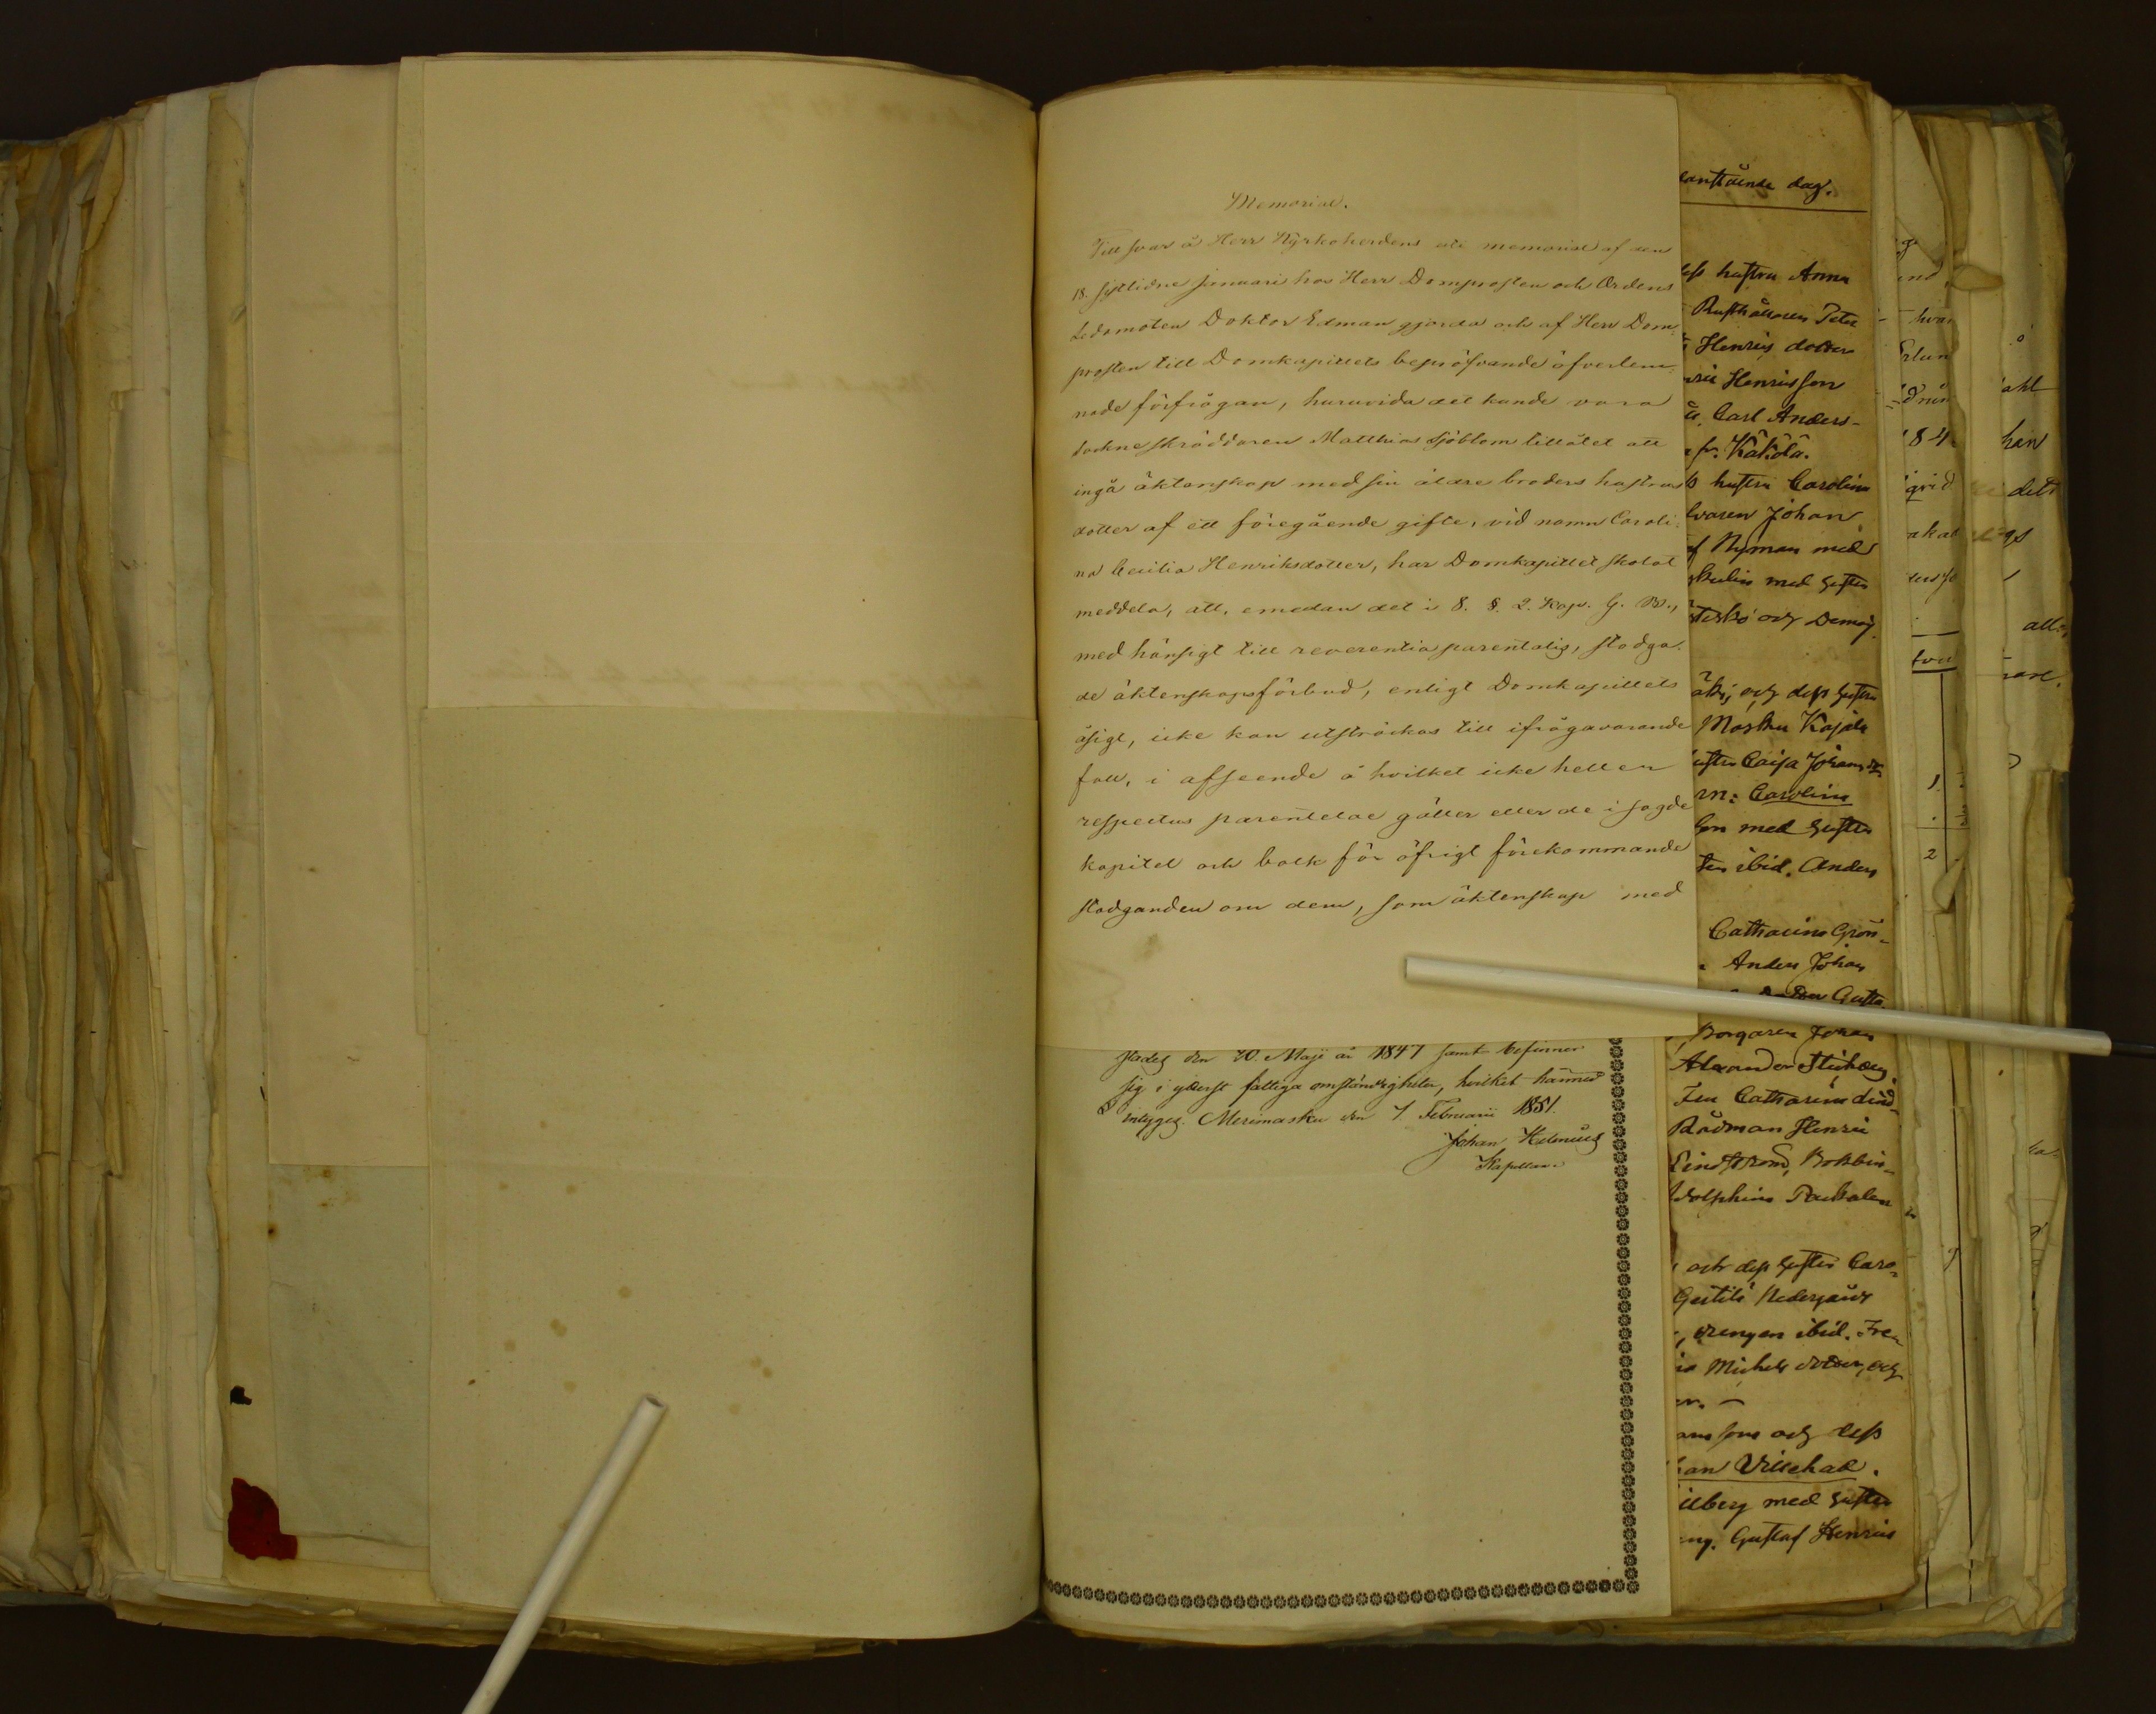 Memorial.
Till svar å Herr Kyrkoherdens uti memorial af den
18. sistlidne Januari hos Herr Domprosten och Ordens
Ledamoten Doktor Edman gjorda och af Herr Dom-
prosten till Domkapitlets bepröfvande öfverlem-
nade förfrågan, huruvida det kunde vara
sockneskräddaren Matthias Sjöblom tillåtet att
ingå äktenskap med sin äldre broders hustrus
dotter af ett föregående gifte, vid namn Caroli-
na Cecilia Henriksdotter, har Domkapitlet skolat
meddela, att, emedan det i 8. §. 2. Kap. G. B.,
med hänsigt till reverentia parentalis, stadga-
de äktenskapsförbud, enligt Domkapitlets
åsigt, icke kan utsträckas till ifrågavarande
fall, i afseende å hvilket icke heller
respectus parentelae gäller eller de i sagde
kapitel och balk för öfrigt förekommande
stadganden om dem, som äktenskap med
stades den 20. Maji år 1847 samt befinner
sig i ytterst fattiga omständigheter, hvilket härmed
intygas. Merimasku den 7 Februarii 1851.
Johan Helenius
Kapellan.
anstående dag.
dess hustru Anna
Rusthållaren Peter
Henrics dotter
Henricsson
Carl Anders-
fr. Käkölä.
hustru Carolina
Johan
Nyman med
med hustru
och Demois.
och dess hustru
Masku Kajala
hustru Caisa Johans dr
m: Carolina
son med hustru
ibid. Anders
Catharina Grön-
Anders Johan
dotter Gusta
Borgaren Johan
Alexander
Catharina Lind-
Rådman Henric
Lindström, Bokbin-
och dess hustru Caro-
Nedergård
drengen ibid. Fre-
Michels dotter, och
ansson och dess
han Villehad.
med hustru
Gustaf Henric
184